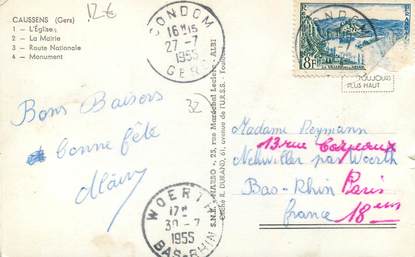 CAUSSENS (Gers)
1 - L'Eglise
2 - La Mairie
3 - Route Nationale
4 - Monument
12€
CONDOM
16H15
27-7
1955
GERS
CONDOM
8F
TOUJOURS
PLUS HAUT
32
Bons Baisers
bonne fête
S.N.E. "NARBO" - 23, rue Maréchal Leclerc - ALBI
Cliché R. DURAND, 61, avenue de l'U.R.S.S. Toulouse
WOERTH
17H
30-7
1955
BAS-RHIN
Madame Heymann
13 rue Carpeaux
Nehwiller par Woerth
Bas-Rhin Paris
France 18em